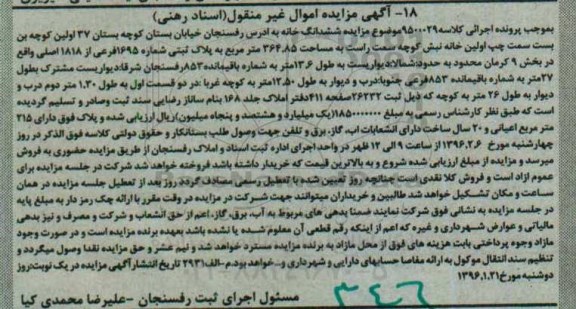 ۱۸- آگهی مزایده اموال غیر منقول(اسناد رهنی)
بموجب پرونده اجرائی کلاسه۹۵۰۰۰۲۹موضوع مزایده ششدانگ خانه به آدرس رفسنجان خیابان بستان کوچه بستان ۳۷ اولین کوچه بن
بست سمت چپ اولین خانه نبش کوچه سمت راست به مساحت ۳۶۴.۸۵ متر مربع به پلاک ثبتی شماره ۱۶۹۵فرعی از ۱۸۱۸ اصلی واقع
در بخش ۹ کرمان محدود به حدود:شمالا:دیواریست به طول ۱۳.۶متر به شماره باقیمانده ۸۵۳رفسنجان شرقا:دیواریست مشترک بطول
۲۷متر به شماره باقیمانده ۸۵۳فرعی جنوبا:درب و دیوار به طول ۱۲.۵۰متر به کوچه غربا :در دو قسمت اول به طول ۱.۳۰ متر دوم درب و
دیوار به طول ۲۶ متر به کوچه که ذیل ثبت ۲۶۲۳۲صفحه ۴۱۱دفتر املاک جلد ۱۶۸ بنام ساناز رضایی سند ثبت وصادر و تسلیم گردیده
است که طبق نظر کارشناس رسمی به مبلغ ۱۸۵۰۰۰۰۰۰۰(یک میلیارد و هشتصد و پنجاه میلیون)ریال ارزیابی شده و پلاک فوق دارای ۲۱۵
متر مربع اعیانی و ۲۰ سال ساخت دارای انشعابات آب، گاز، برق و تلفن جهت وصول طلب بستانکار و حقوق دولتی کلاسه فوق الذکر در روز
چهارشنبه مورخ ۱۳۹۶.۲.۶ از ساعت ۹ الی ۱۲ ظهر در واحد اجرای اداره ثبت اسناد و املاک رفسنجان از طریق مزایده حضوری به فروش
میرسد و مزایده از مبلغ ارزیابی شده شروع و به بالاترین قیمت که خریدار داشته باشد فروخته خواهد شد شرکت در جلسه مزایده برای
عموم آزاد است و فروش کلا نقدی است چنانچه روز تعیین شده با تعطیل رسمی مصادف گردد روز بعد از تعطیل جلسه مزایده در همان
ساعت و مکان تشکیل خواهد شد طالبین و خریداران میتوانند جهت شرکت در مزایده در وقت مقرر با ارائه چک رمز دار به مبلغ پایه
در جلسه مزایده به نشانی فوق شرکت نمایند ضمنا بدهی های مربوط به آب، برق، گاز، اعم از حق انشعاب و شرکت و مصرف و نیز بدهی
مالیاتی و عوارض شهرداری و غیره که اعم از اینکه رقم قطعی آن معلوم شده یا نشده باشد بعهده برنده مزایده است و در صورت وجود
مازاد وجوه پرداختی بابت هزینه های فوق از محل مازاد به برنده مزایده مسترد خواهد شد و نیم عشر و حق مزایده نقدا وصول میگردد و
تنظیم سند انتقال موکول به ارائه مفاصا حسابهای دارایی و شهرداری و... خواهد بود.م-الف:۲۹۳۱ تاریخ انتشار آگهی مزایده در یک نوبت:روز
دوشنبه مورخ ۱۳۹۶.۱.۲۱
مسئول اجرای ثبت رفسنجان -علیرضا محمدی کیا
۳۴۶